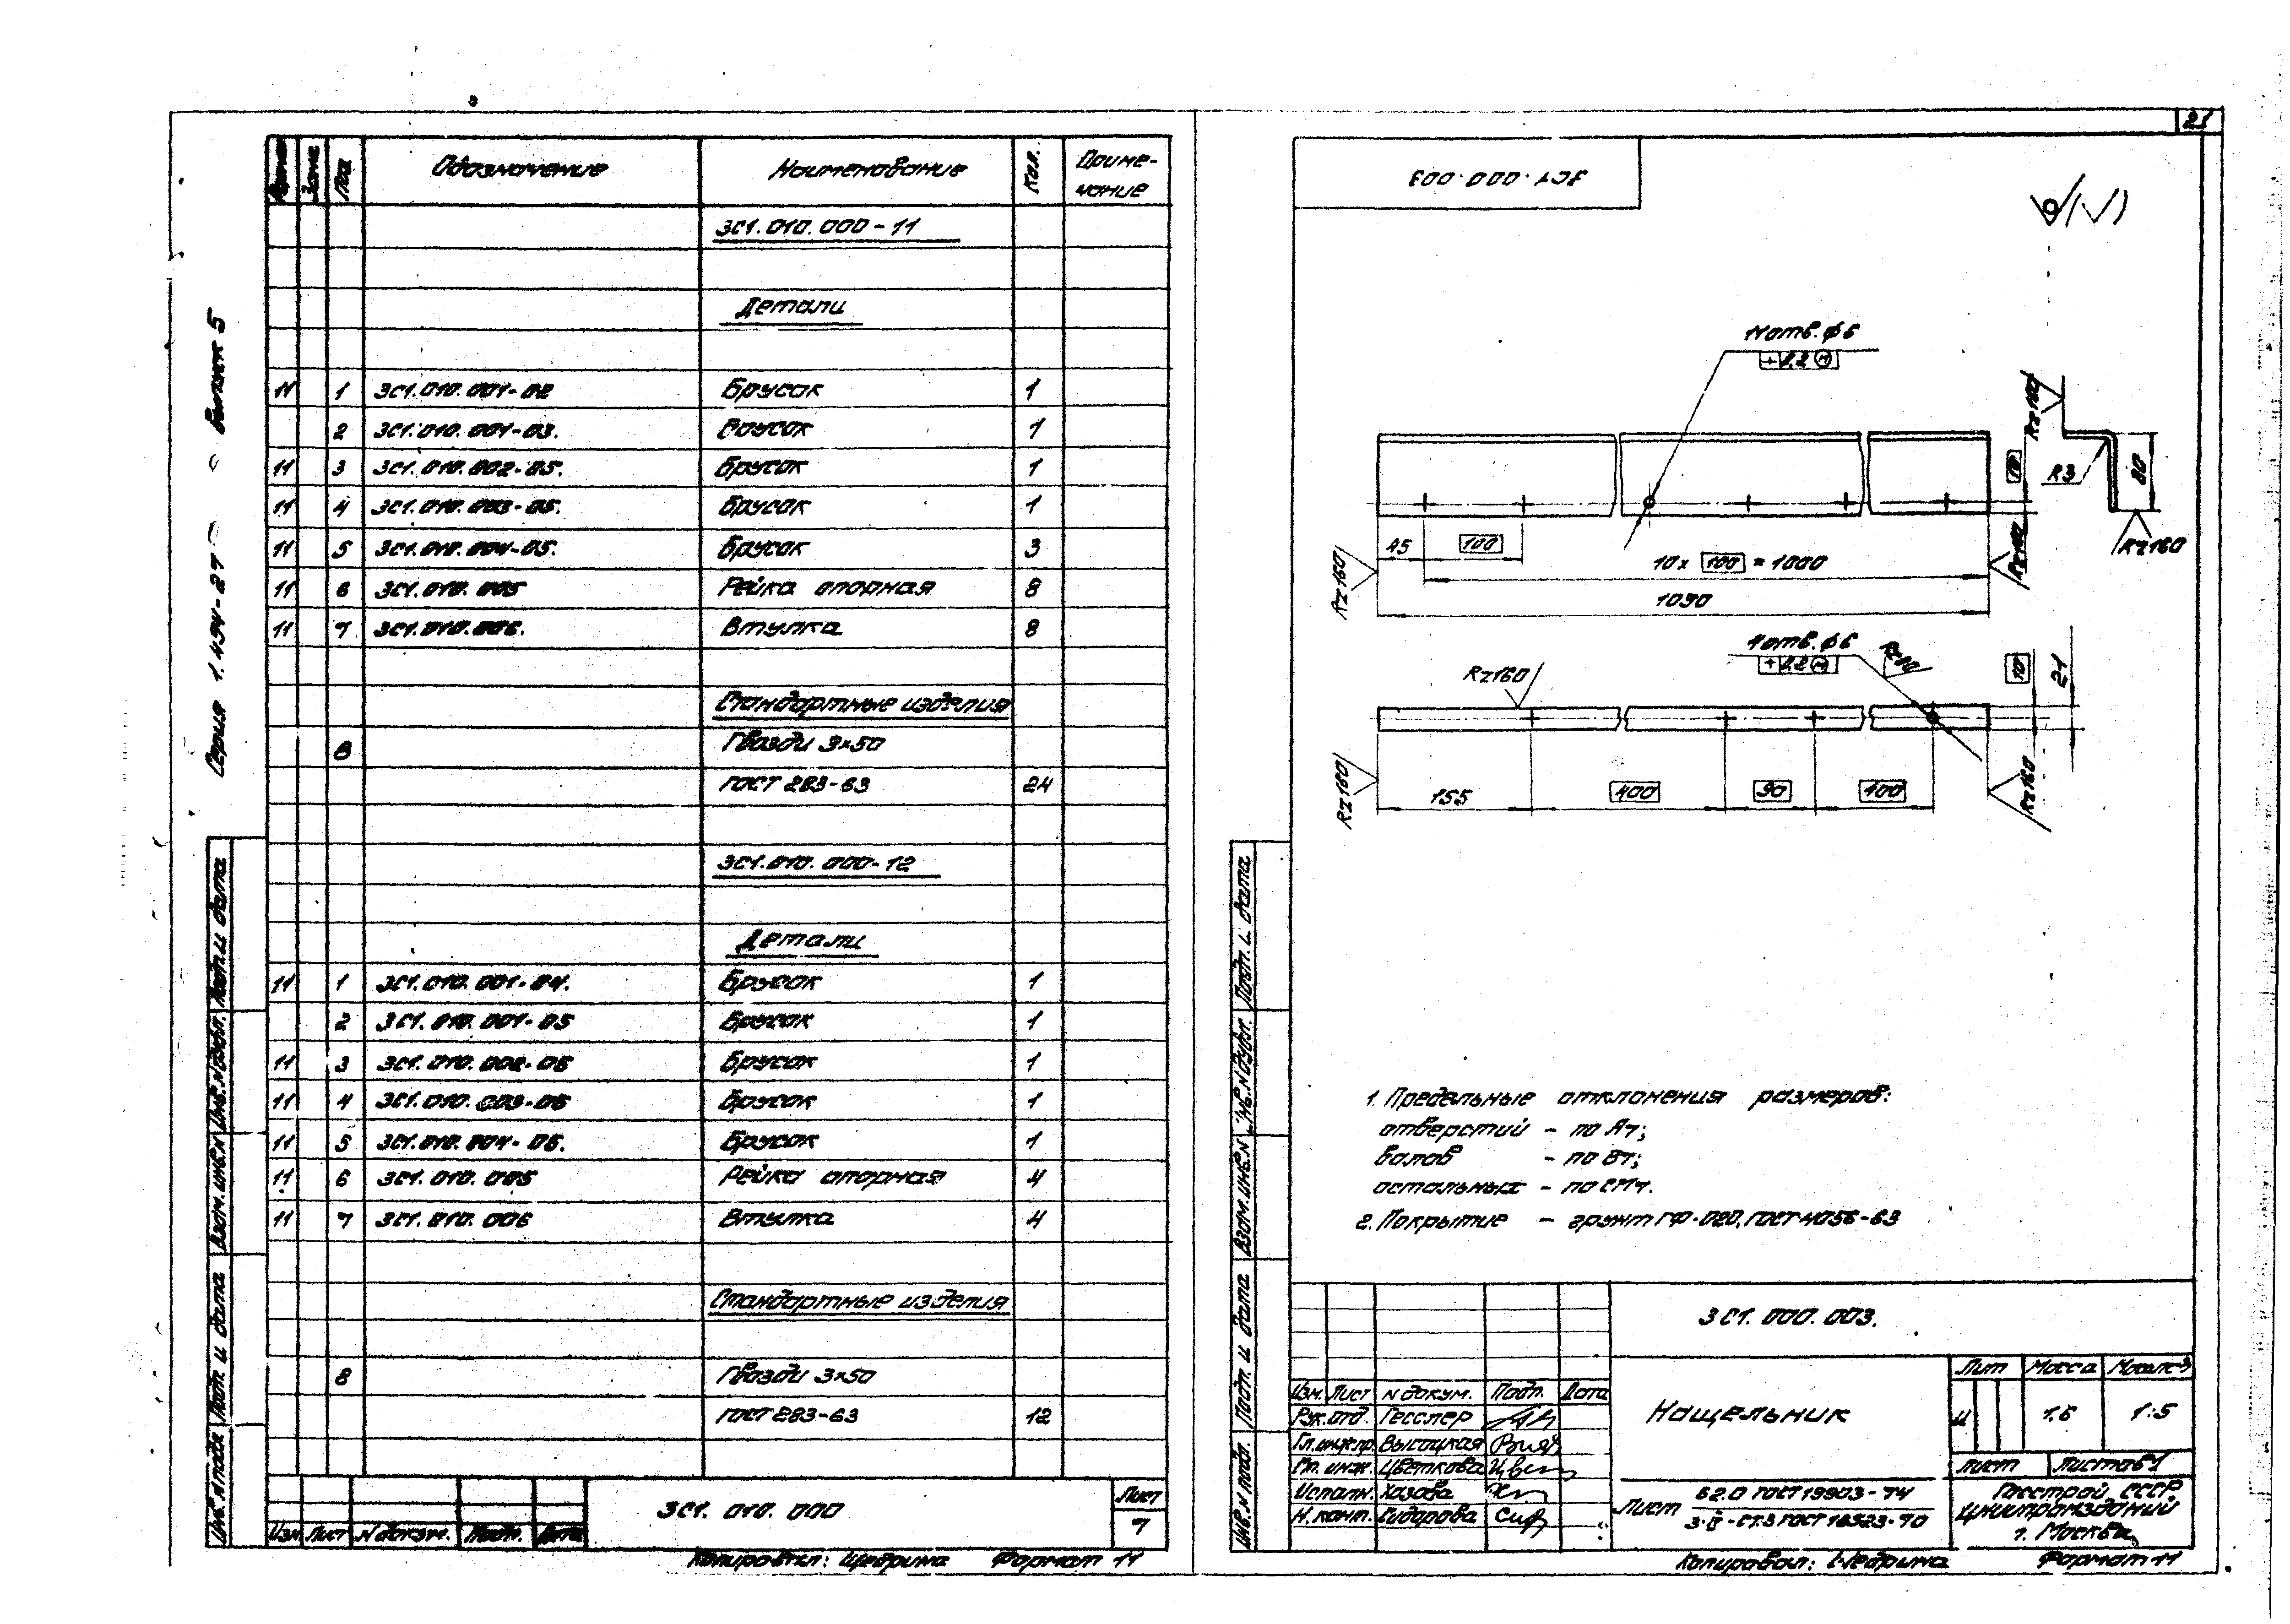 21
Серия 1.494-27 Выпуск 5
Формат Зона Поз Обозначение Наименование Кол. Приме-
чание
3С1.010.000-11
Детали
11 1 3С1.010.001-02 Брусок 1
2 3С1.010.001-03. Брусок 1
11 3 3С1.010.002-05. Брусок 1
11 4 3С1.010.003-05. Брусок 1
11 5 3С1.010.004-05. Брусок 3
11 6 3С1.010.005 Рейка опорная 8
11 7 3С1.010.006. Втулка 8
Стандартные изделия
8 Гвозди 3×50
ГОСТ 283-63 24
3С1.010.000-12
Детали
11 1 3С1.010.001-04. Брусок 1
2 3С1.010.001-05 Брусок 1
11 3 3С1.010.002-06 Брусок 1
11 4 3С1.010.003-06 Брусок 1
11 5 3С1.010.004-06. Брусок 1
11 6 3С1.010.005 Рейка опорная 4
11 7 3С1.010.006 Втулка 4
Стандартные изделия
8 Гвозди 3×50
ГОСТ 283-63 12
Инв.№подл Подп. и дата Взам.инв.№ Инв.№дубл. Подп. и дата
Изм Лист № докум. Подп. Дата
3С1.010.000
Лист
7
Копировал: Щедрина Формат 11
3С1.000.003
11 отв. ϕ6
R3
80
Rz160
45 100
10× 100 = 1000
1090
4 отв. ϕ6
Rz160
10 21
155 400 90 400
Rz160
1. Предельные отклонения размеров:
отверстий - по А7;
валов - по В7;
остальных - по СМ7.
2. Покрытие - грунт ГФ-020, ГОСТ 4056-63
Инв.№подл. Подп. и дата Взам.инв.№ Инв.№дубл. Подп. и дата
3С1.000.003.
Изм. Лист № докум. Подп. Дата
Рук.отд. Гесслер
Гл.инж.пр. Высоцкая
Гл. инж. Цветкова
Исполн. Хазова
Н. конт. Сидорова
Нащельник
Лит Масса Масштаб
И 1.6 1:5
Лист Листов 1
Лист Б2.0 ГОСТ 19903-74
3-II-СТ.3 ГОСТ 16523-70
Госстрой СССР
ЦНИИпромзданий
г. Москва
Копировал: Щедрина Формат 11